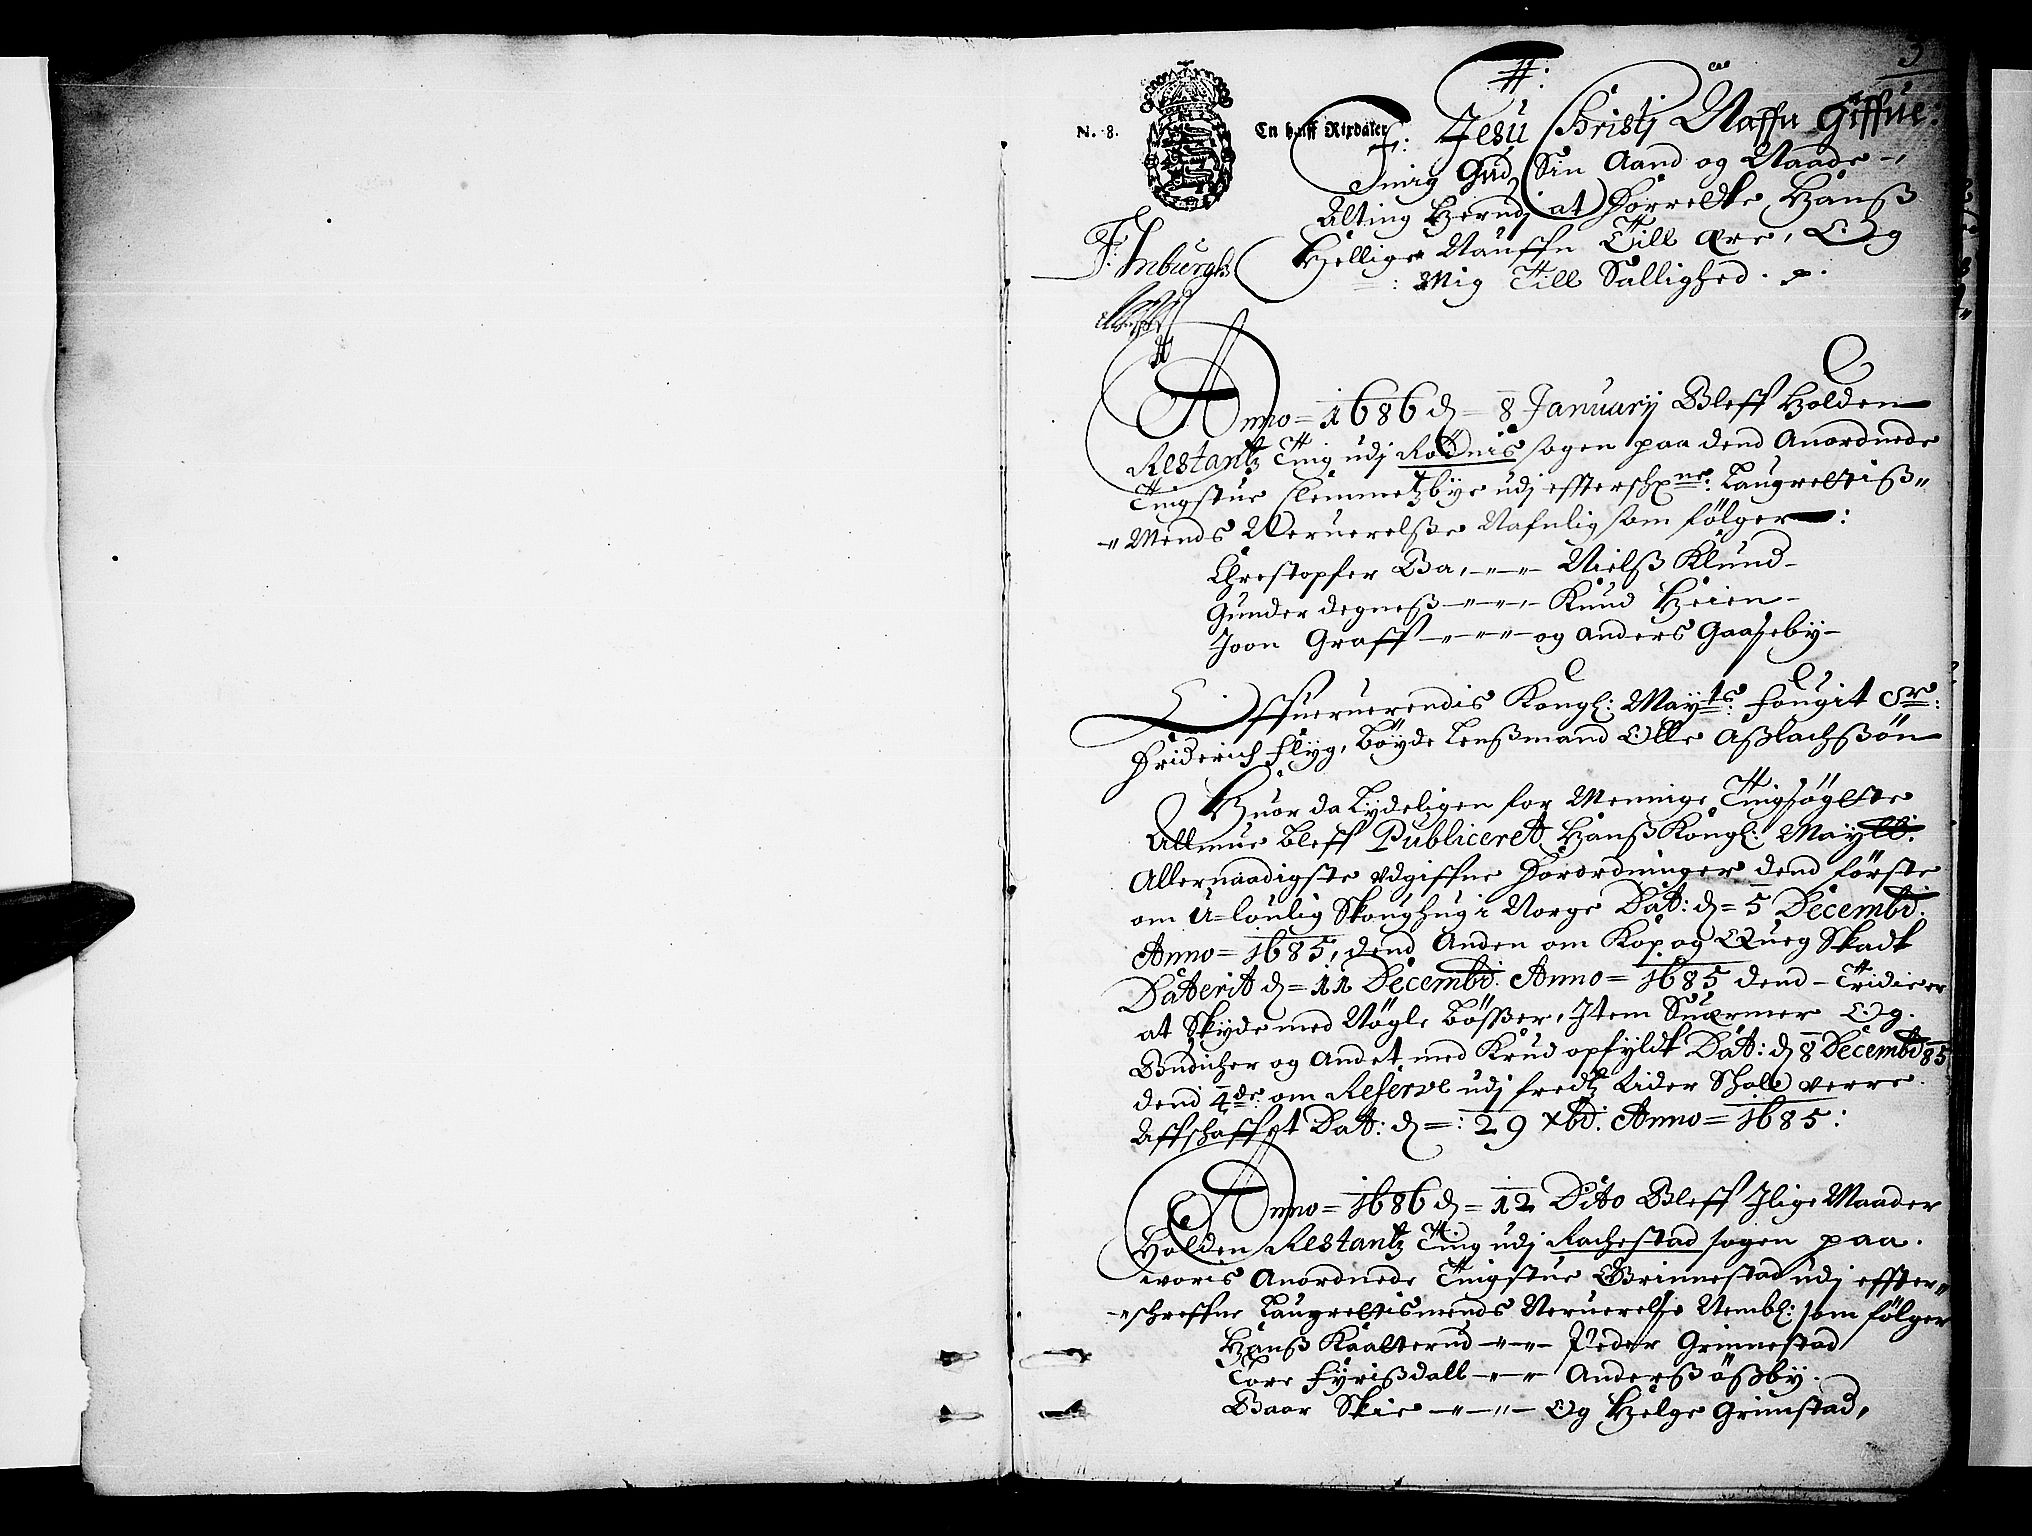 3
N. 8. En halff Rixdaler
I: Jesu Christj Naffn Giffue:
mig Gud Sin Aand og Naade
Alting Herudj at Forrette Hanß
Hellige Nauffn Till Ære, Og
: Mig Till Sallighed.
Anno = 1686 d = 8 Januarij Bleff Holden
Restantz Ting udj Rødnis sogen paa dend Anordnede
Tingstue Clemmetzbye udj effterschne: Laugrettiß"
"Mends Neruerelße Nafnlig som følger:
Christopfer Ba, Nielß Klund
Gunder degneß Knud Heien
Joon Graff og Anders Gaaseby
Offueruerendis Kongl: Mayts: fougit Sr:
Friderich Flyg, Bøyde Lenßmand Olle Aßlachßøn
Huor da Lydeligen for Mennige Tingsøgste
Allmue bleff Publiceret Hanß Kongl: Maytt:
Allernaadigste udgiffne Forordninger dend første
om U=loulig Skoughug i Norge Dat: d = 5 Decembd:
Anno = 1685, dend Anden om Kop og Queg Skadt
Daterit d = 11 Decembd: Anno = 1685 dend Tridie er
at Skyde med Nøgle Bøßer, Item Suermer Og
Budicher og Andet med Krud opfyldt Dat: d 8 Decembd 85
dend 4de: om Reserve udj fredtz tider Schall verre
Affschaffet Dat: d =: 29 xbd: Anno = 1685:
Anno = 1686 d = 12 Dito Bleff Ilige Maader
Holden Restantz Ting udj Rachestad sogen paa
woris Anordnede Tingstue Grinnestad udj effter"
"schreffne Laugrettismends Neruerelse Nembl: som følger
Hanß Kaalterud Peder Grinnestad
Tore Fyrißdall Anderß Ößby
Baar Skie Og Helge Grimstad,